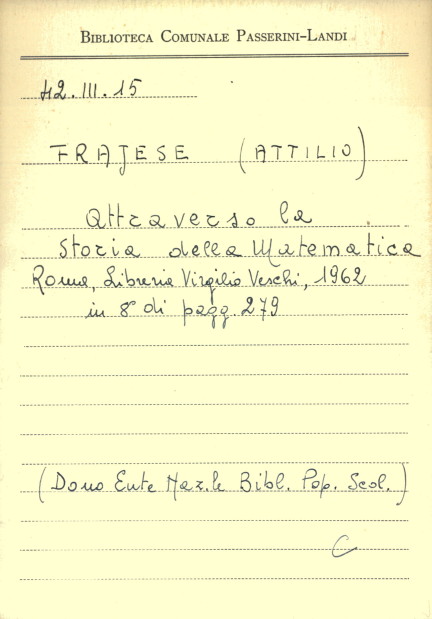 BIBLIOTECA COMUNALE PASSERINI-LANDI
42.III.15
FRAJESE (ATTILIO)
Attraverso la
Storia della Matematica
Roma, Libreria Virgilio Veschi, 1962
in 8° di pagg. 279
(Dono Ente Naz.le Bibl. Pop. Scol.)
C